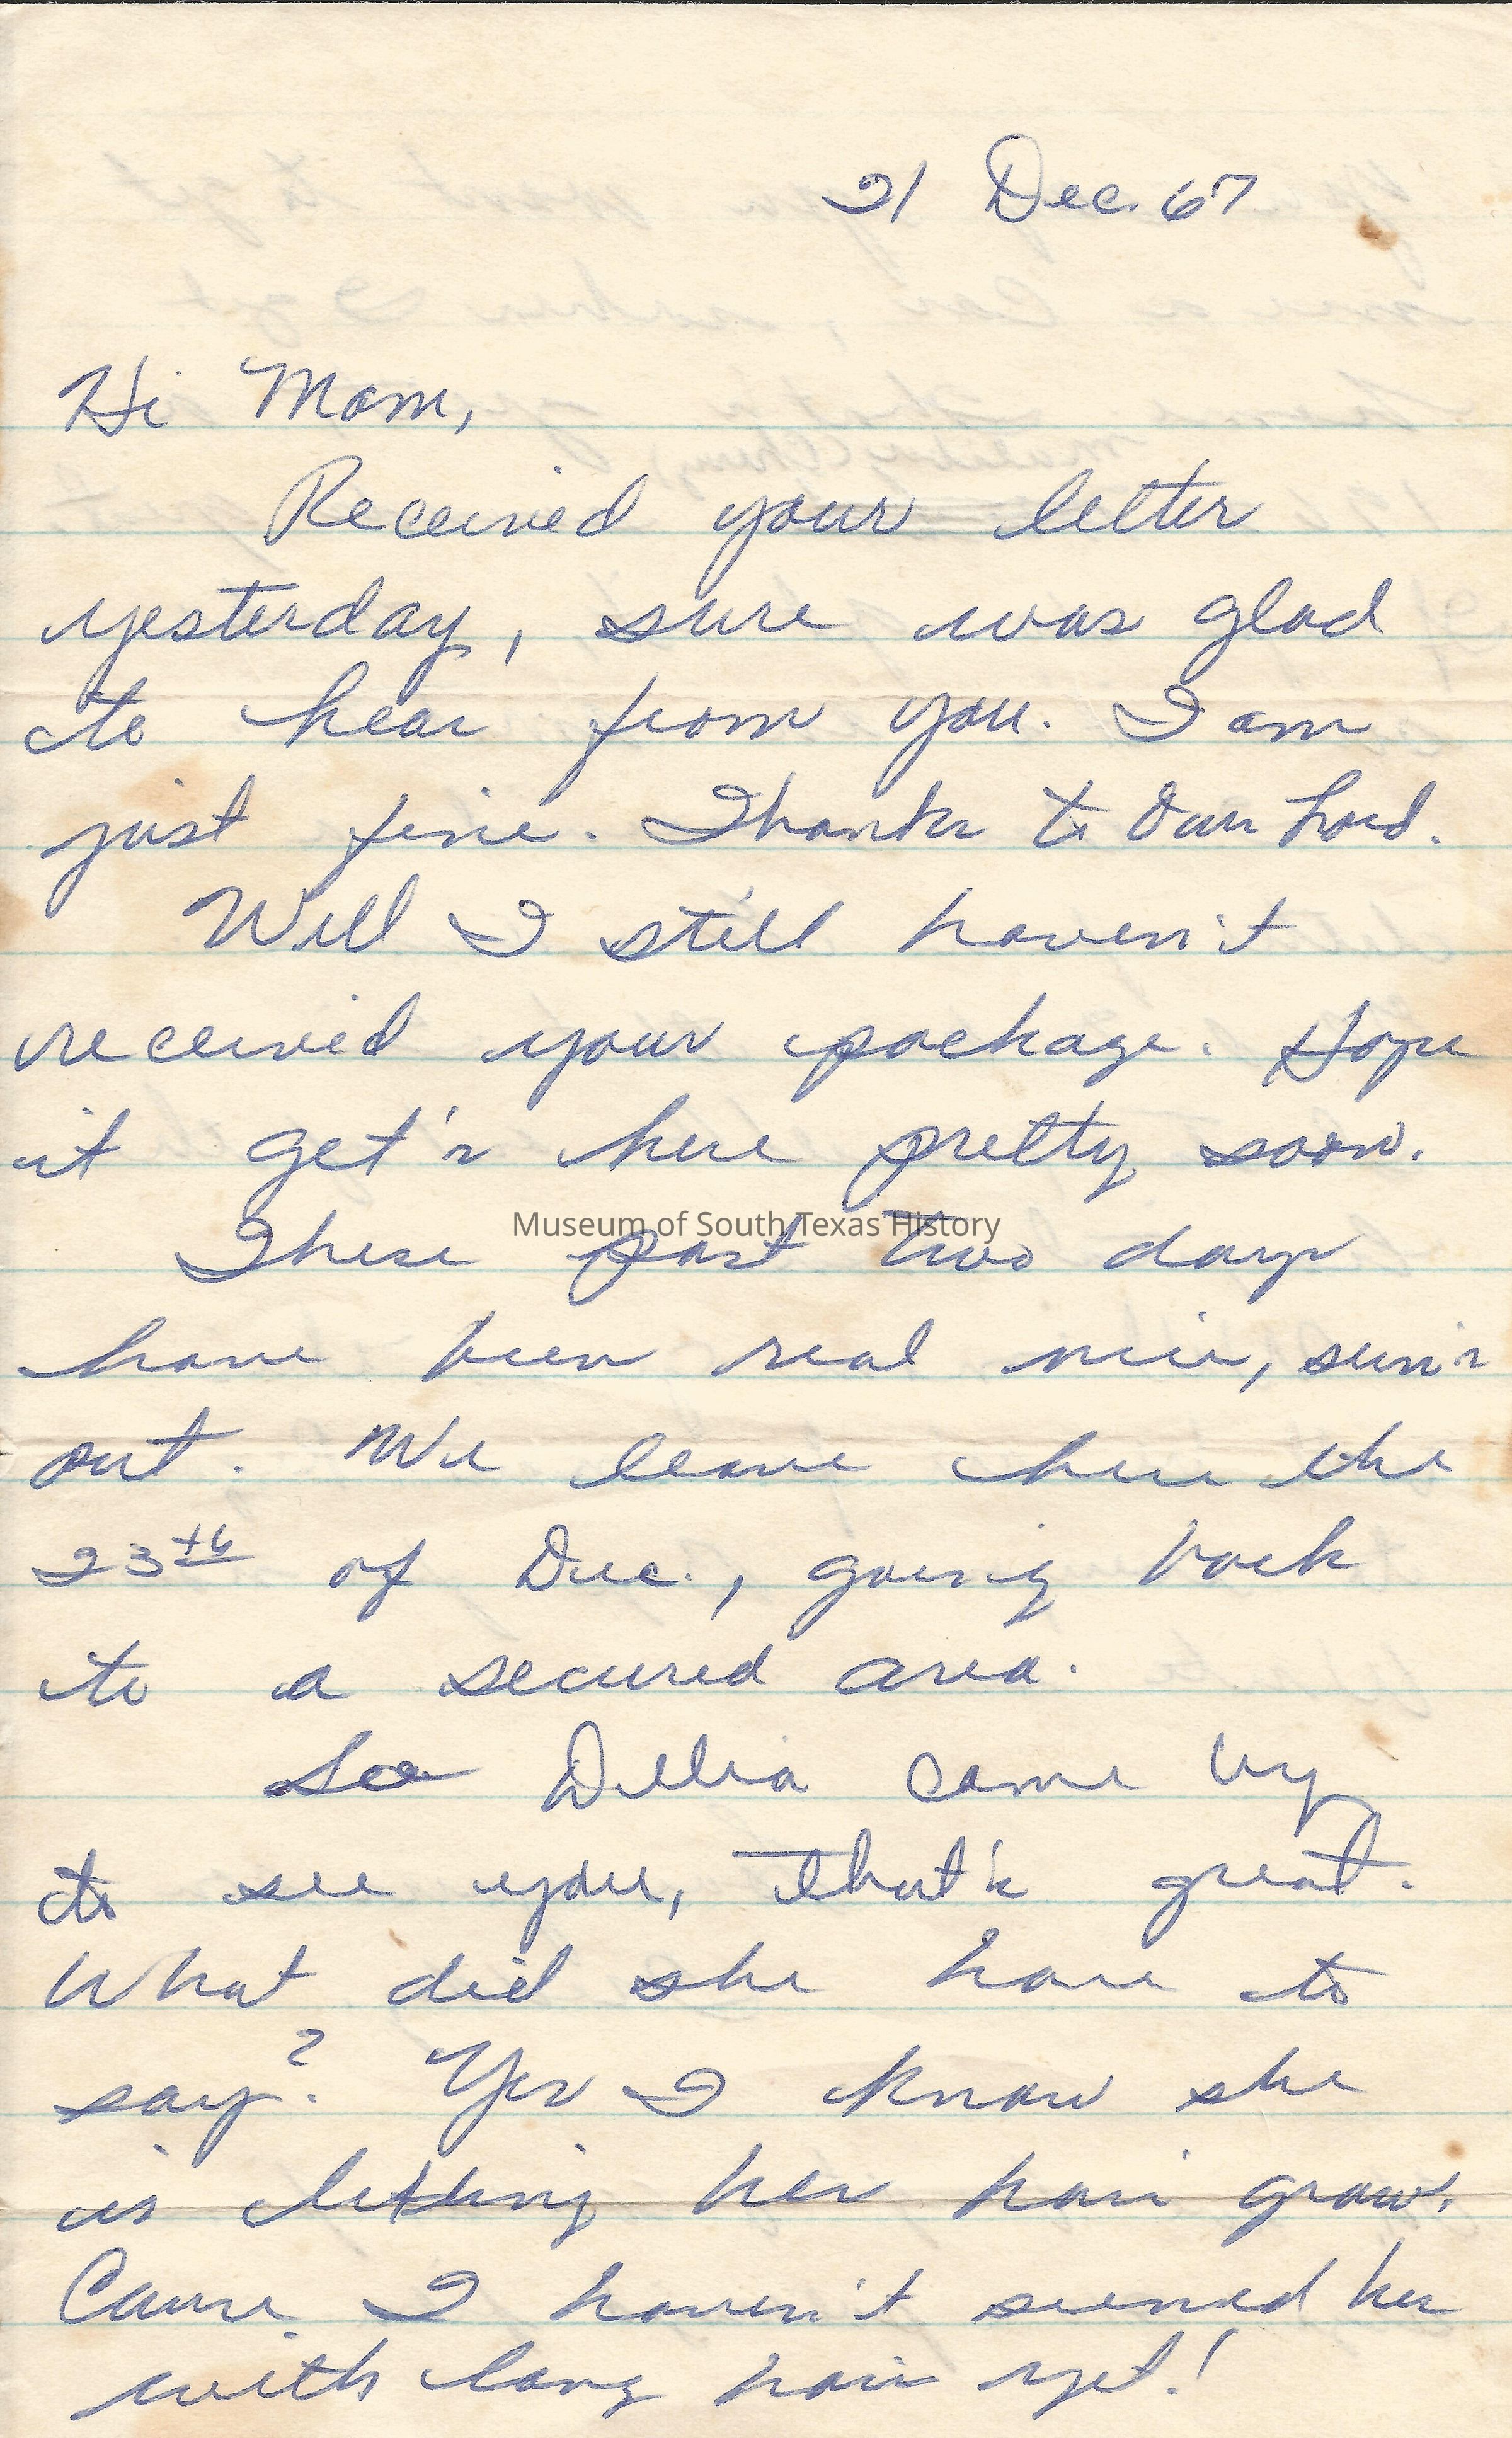 21 Dec. 67
Hi Mom,
Received your letter
yesterday, sure was glad
to hear from you. I am
just fine. Thanks to Our Lord.
Well I still haven't
received your package. Hope
it get's here pretty soon.
Museum of South Texas History
These past two days
have been real nice, sun's
out. We leave here the
23th of Dec., going back
to a secured area.
So Dellia came by
to see you, that's great.
What did she have to
say? Yes I know she
is letting her hair grow.
Cause I haven't seened her
with long hair yet!